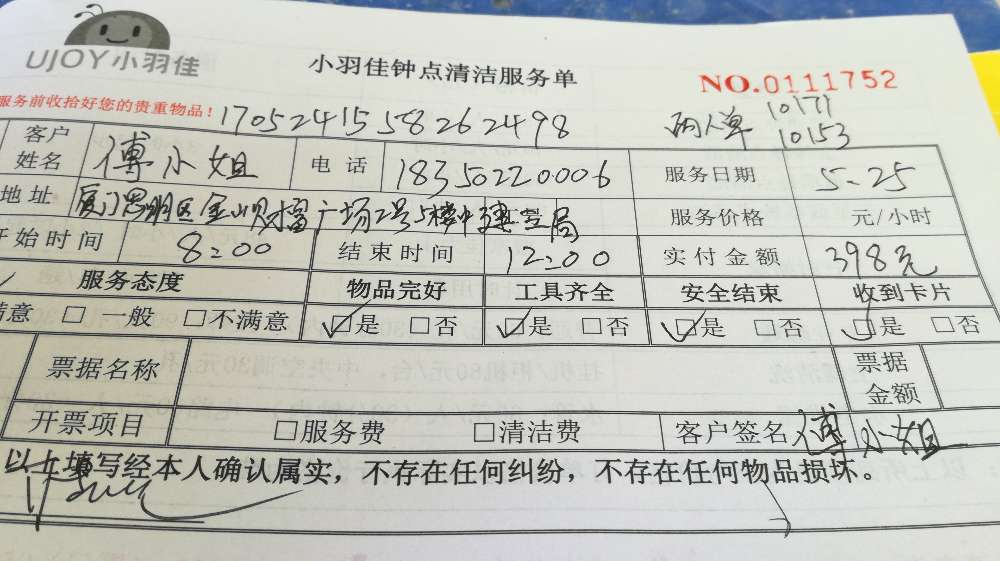 UJOY小羽佳
小羽佳钟点清洁服务单
NO.0111752
服务前收拾好您的贵重物品!
1705241558262498
两人单 10171
10153
客户姓名 傅小姐 电话 18350220006 服务日期 5.25
地址 金山财富广场2号5楼中建三局 服务价格 元/小时
开始时间 8:00 结束时间 12:00 实付金额 398元
服务态度 物品完好 工具齐全 安全结束 收到卡片
满意 □一般 □不满意 ☑是 □否 ☑是 □否 ☑是 □否 ☑是 □否
票据名称 票据金额
开票项目 □服务费 □清洁费 客户签名 傅小姐
以上填写经本人确认属实，不存在任何纠纷，不存在任何物品损坏。